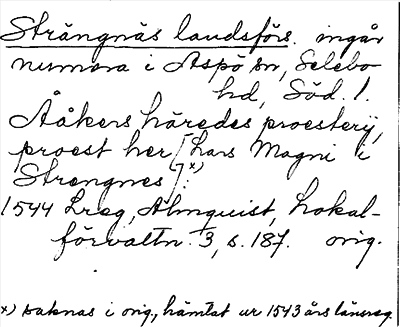 Strängnäs landsförs. ingår
numera i Aspö sn, Selebo
hd, Söd. l.
Aåkers häredes proesterij,
proest her [Lars Magni i
Strengnes]x):
1544 Lreg, Almquist, Lokal-
förvaltn. 3, s. 187. orig.
x) saknas i orig., hämtat ur 1543 års länsreg.